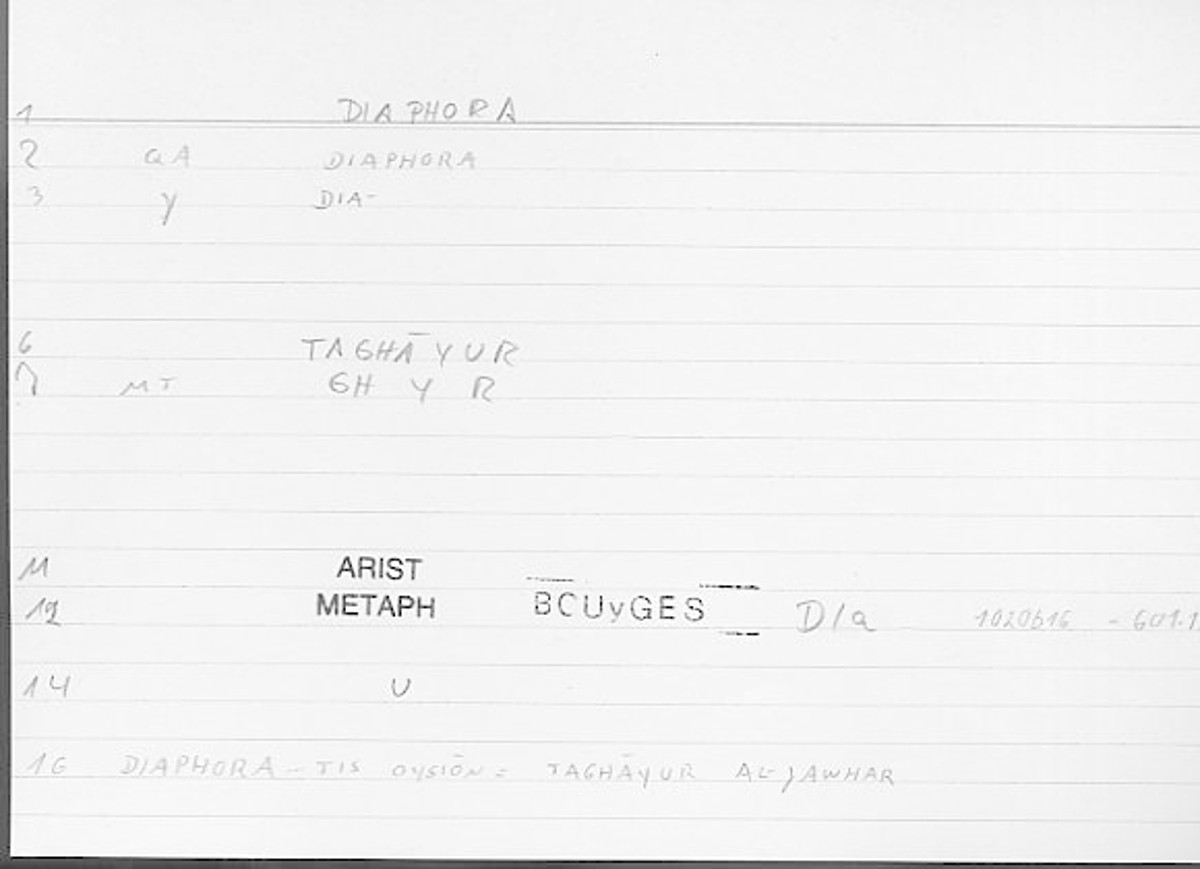 1 DIAPHORA
2 GA DIAPHORA
3 y DIA-
6 TAGHĀYUR
7 MT GH Y R
11 ARIST
12 METAPH BOUyGES D/a 1020b16 - 601.1
14 U
16 DIAPHORA-TIS OYSIŌN = TAGHĀYUR AL-JAWHAR